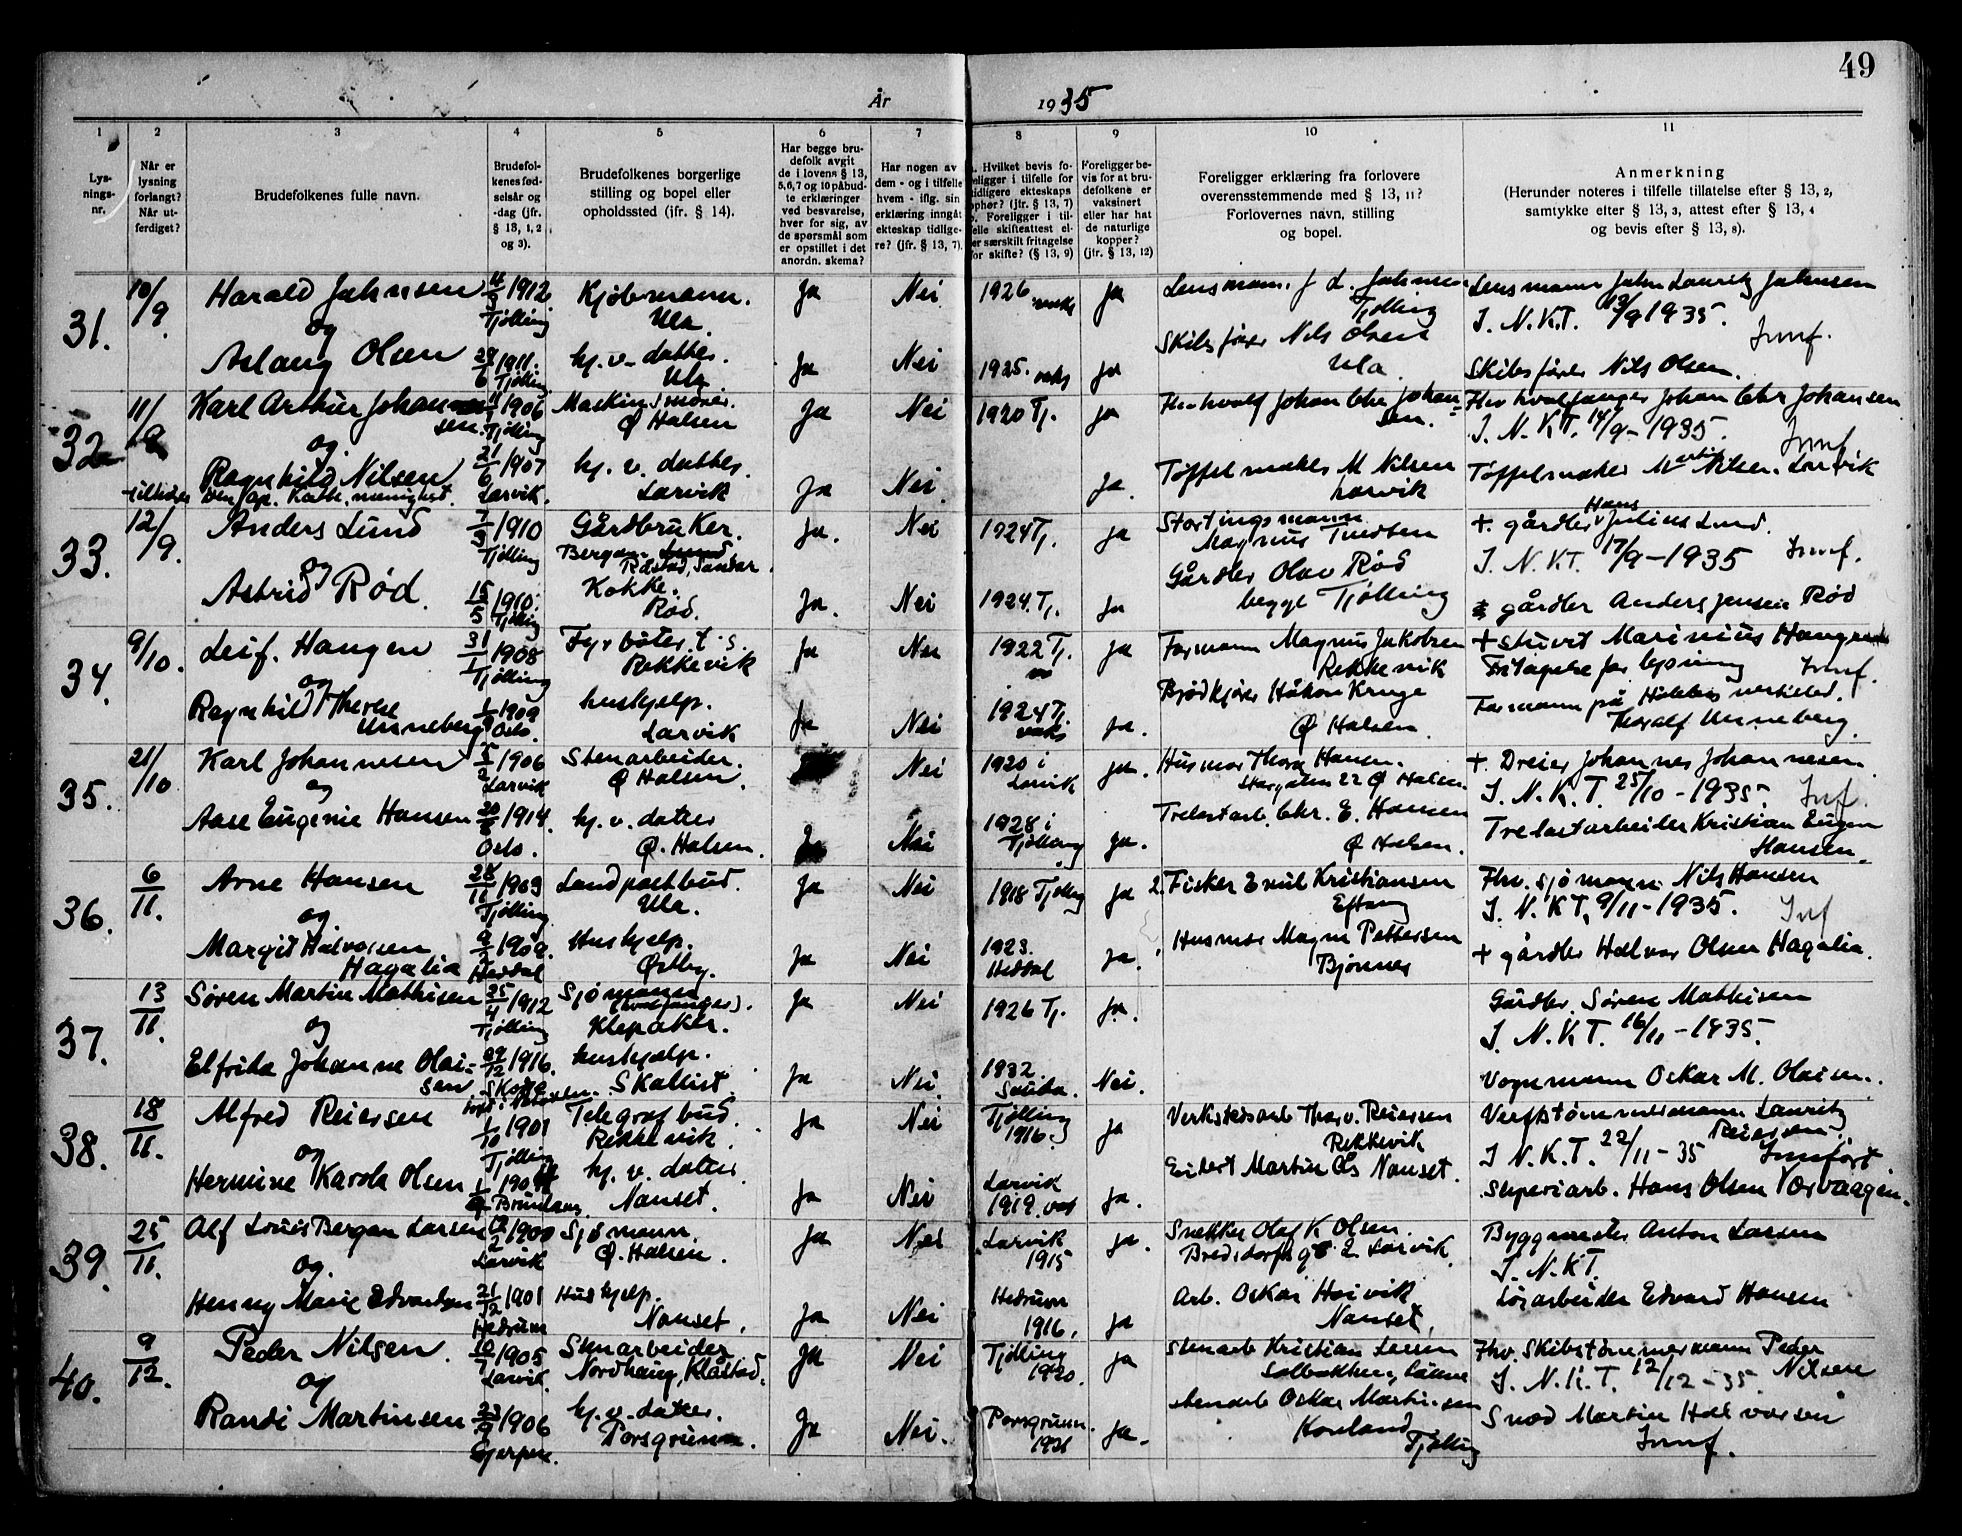 49
År 1935
1 2 3 4 5 6 7 8 9 10 11
Lysnings-nr.
Når er lysning forlangt? Når utferdiget?
Brudefolkenes fulle navn.
Brudefolkenes fødselsår og -dag (jfr. § 13, 1, 2 og 3).
Brudefolkenes borgerlige stilling og bopel eller opholdssted (jfr. § 14).
Har begge brudefolk avgit de i lovens § 13, 5, 6, 7 og 10 påbudte erklæringer ved besvarelse, hver for sig, av de spørsmål som er opstillet i det anordn. skema?
Har nogen av dem - og i tilfelle hvem - iflg. sin erklæring inngått ekteskap tidligere? (jfr. § 13, 7).
Hvilket bevis foreligger i tilfelle for tidligere ekteskaps ophør? (jfr. § 13, 7) Foreligger i tilfelle skifteattest eller særskilt fritagelse for skifte? (§ 13, 9)
Foreligger bevis for at brudefolkene er vaksinert eller har hat de naturlige kopper? (jfr. § 13, 12)
Foreligger erklæring fra forlovere overensstemmende med § 13, 11? Forlovernes navn, stilling og bopel.
Anmerkning (Herunder noteres i tilfelle tillatelse efter § 13, 2, samtykke efter § 13, 3, attest efter § 13, 4 og bevis efter § 13, 8).
31. 10/9. Harald Jahnsen 1912 Tjølling Kjøbmann. Ula. Ja Nei 1926 Ja Lensmann J. L. Jahnsen Tjølling Lensmann John Lauritz Jahnsen
og I. N. K. T. 13/9 1935. Innf.
Aslaug Olsen 1911. Tjølling hj. v. datter. Ula Ja Nei 1925. Ja Skibsfører Nils Olsen Ula Skibsfører Nils Olsen.
32 11/9 Karl Arthur Johannessen. 1906 Tjølling Maskinsmører. Ø Halsen Ja Nei 1920 Tj. Ja Fhv hvalf Johan Chr Johansen. Fhv hvalfanger Johan Chr Johansen
og I. N. K T. 14/9 - 1935. Innf
Ragnhild Nilsen 21/6 1907 Larvik. hj. v. datter. Larvik Ja Nei. Ja. Tøffelmaker M Nilsen Larvik Tøffelmaker Martin Nilsen. Larvik
33. 12/9. Anders Lund 1910 Tjølling Gårdbruker. Råstad, Sandar. Ja. Nei 1924 Tj. Ja Stortingsmann Magnus Tvedten + gårdbr Hans Julius Lund.
og I. N. KT. 17/9 - 1935 Innf.
Astrid Rød. 15/5 1910. Tjølling Kokke. Rød. Ja. Nei 1924. Tj. Ja Gårdbr Olav Rød begge Tjølling gårdbr Anders Jensen Rød
34. 9/10. Leif. Haugen 31/1 1908 Tjølling Fyrbøter t. s. Rekkevik Ja Nei 1922 Tj. Ja Formann Magnus Jakobsen Rekkevik + stuert Marinius Haugen
og Fritagelse for lysning Innf.
Ragnhild Therese Unneberg 1909 Oslo. hushjelp. Larvik Ja Nei 1924 Tj. Ja. Håkon Kruge Ø Halsen. Formann på Thoralf Unneberg.
35. 21/10 Karl Johannesen 1906 Larvik Stenarbeider. Ø Halsen. Nei 1920 i Larvik Ja. Husmor Thora Hansen. Storgaten 22 Ø Halsen. + Dreier Johannes Johannesen.
og I. N. K. T. 25/10 - 1935. Inf.
Aase Eugenie Hansen 1914. Oslo. hj. v. datter Ø. Halsen. Ja Nei 1928 i Tjølling Ja. Trelastarb. Chr. E. Hansen Ø Halsen. Trelastarbeider Kristian Eugen Hansen.
36. 6/11. Arne Hansen 28/11 1903 Tjølling Landpostbud. Ula. Ja Nei 1918 Tjølling Ja 2. Fisker Emil Kristiansen Eftang Fhv. sjømann Nils Hansen
og I. N. KT. 9/11 - 1935. Inf
Margit Halvorsen Hagalia 1902. Heddal Hushjelp. Østby. Ja Nei 1923. Heddal Ja. Husmor Magna Pettersen Bjønnes + gårdbr Halvor Olsen Hagalia.
37. 13/11. Søren Martin Mathisen 25/4 1912 Tjølling Sjømann (hvalfanger). Klepaker. Ja Nei 1926 Tj. Ja. Gårdbr. Søren Mathisen
og I. N. K T. 16/11 - 1935.
Elfrida Johanne Olaisen 1916. hushjelp. Skallist Ja Nei. 1932. Sauda. Nei. Vognmann Oskar M. Olaisen.
38. 18/11. Alfred Reiersen 1/10 1901 Tjølling Telegrafbud. Rekkevik. Ja Nei Tjølling 1916. Ja Verkstedsarb Thorv. Reiersen Rekkevik Verftstømmermann Lauritz Reiersen.
og I N. K. T. 22/11 - 35 Innført.
Hermine Karola Olsen Brunlanes hj. v. datter Nanset. Ja Nei Larvik 1919. Ja. Martin Ols Nanset. Sliperiarb. Hans Olsen
39. 25/11. Alf Louis Bergan Larsen 1900 Larvik Sjømann. Ø. Halsen. Ja Nei Larvik 1915 Ja. Snekker Olaf K Olsen. Larvik. Byggmester Anton Larsen
og. I. N. K T.
Henny Marie Edvardsen 21/12 1901 Hedrum Hushjelp. Nanset. Ja Nei Hedrum 1916. Ja Arb. Oskar Hoivik Nanset. Edvard Hansen
40. 9/12. Peder Nilsen. 1905 Larvik. Stenarbeider Nordhaug, Klåstad. Ja Nei Tjølling 1920. Ja Stenarb Kristian Larsen Fhv. Skibstømmermann Peder Nilsen
og I. N. K. T. 12/12 - 35.
Randi Martinsen 23/9 1906 Gjerpen. hj. v. datter. Porsgrunn. Ja Nei. Porsgrunn. 1921 Ja. stenarb Oskar Martinsen Tjølling Smed Martin Halvorsen
Innf.